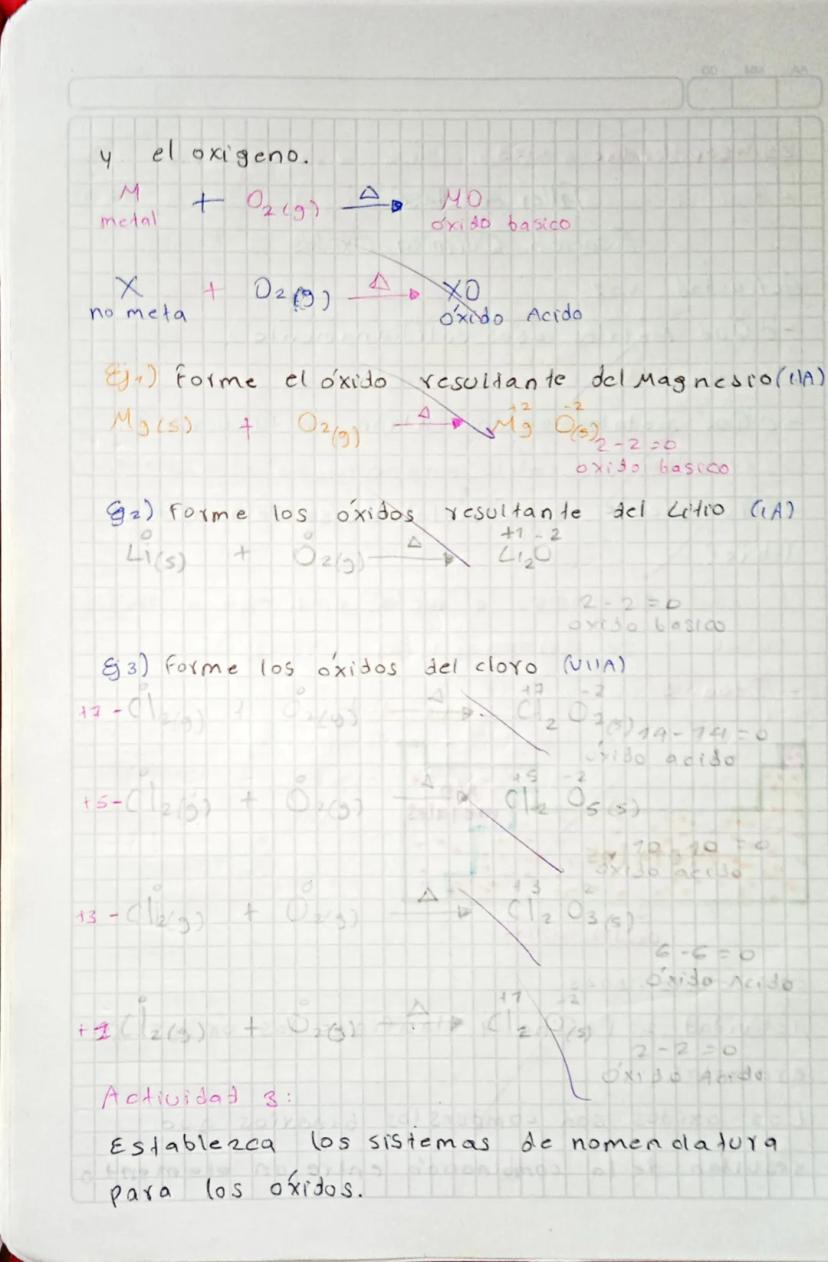 y el oxigeno.
M + O2(g) Δ→ MO
metal óxido basico
X + O2(g) Δ→ XO
no meta óxido Acido
Ej.1) Forme el óxido resultante del Magnesio (IIA)
+2 -2
Mg(s) + O2(g) Δ→ Mg O(s)
2-2=0
oxido basico
Ej2) Forme los óxidos resultante del Litio (IA)
0 0 +1 -2
Li(s) + O2(g) Δ→ Li2O
2-2=0
oxido basico
Ej3) Forme los óxidos del cloro (VIIA)
0 0 +7 -2
+7 - Cl2(g) + O2(g) Δ→ Cl2 O7(s)
14-14=0
óxido acido
0 0 +5 -2
+5 - Cl2(g) + O2(g) Δ→ Cl2 O5(s)
10-10=0
óxido acido
0 0 +3 -2
+3 - Cl2(g) + O2(g) Δ→ Cl2 O3(s)
6-6=0
óxido Acido
0 0 +1 -2
+1 Cl2(g) + O2(g) Δ→ Cl2 O(s)
2-2=0
óxido Acido
Actividad 3:
Establezca los sistemas de nomenclatura
para los óxidos.